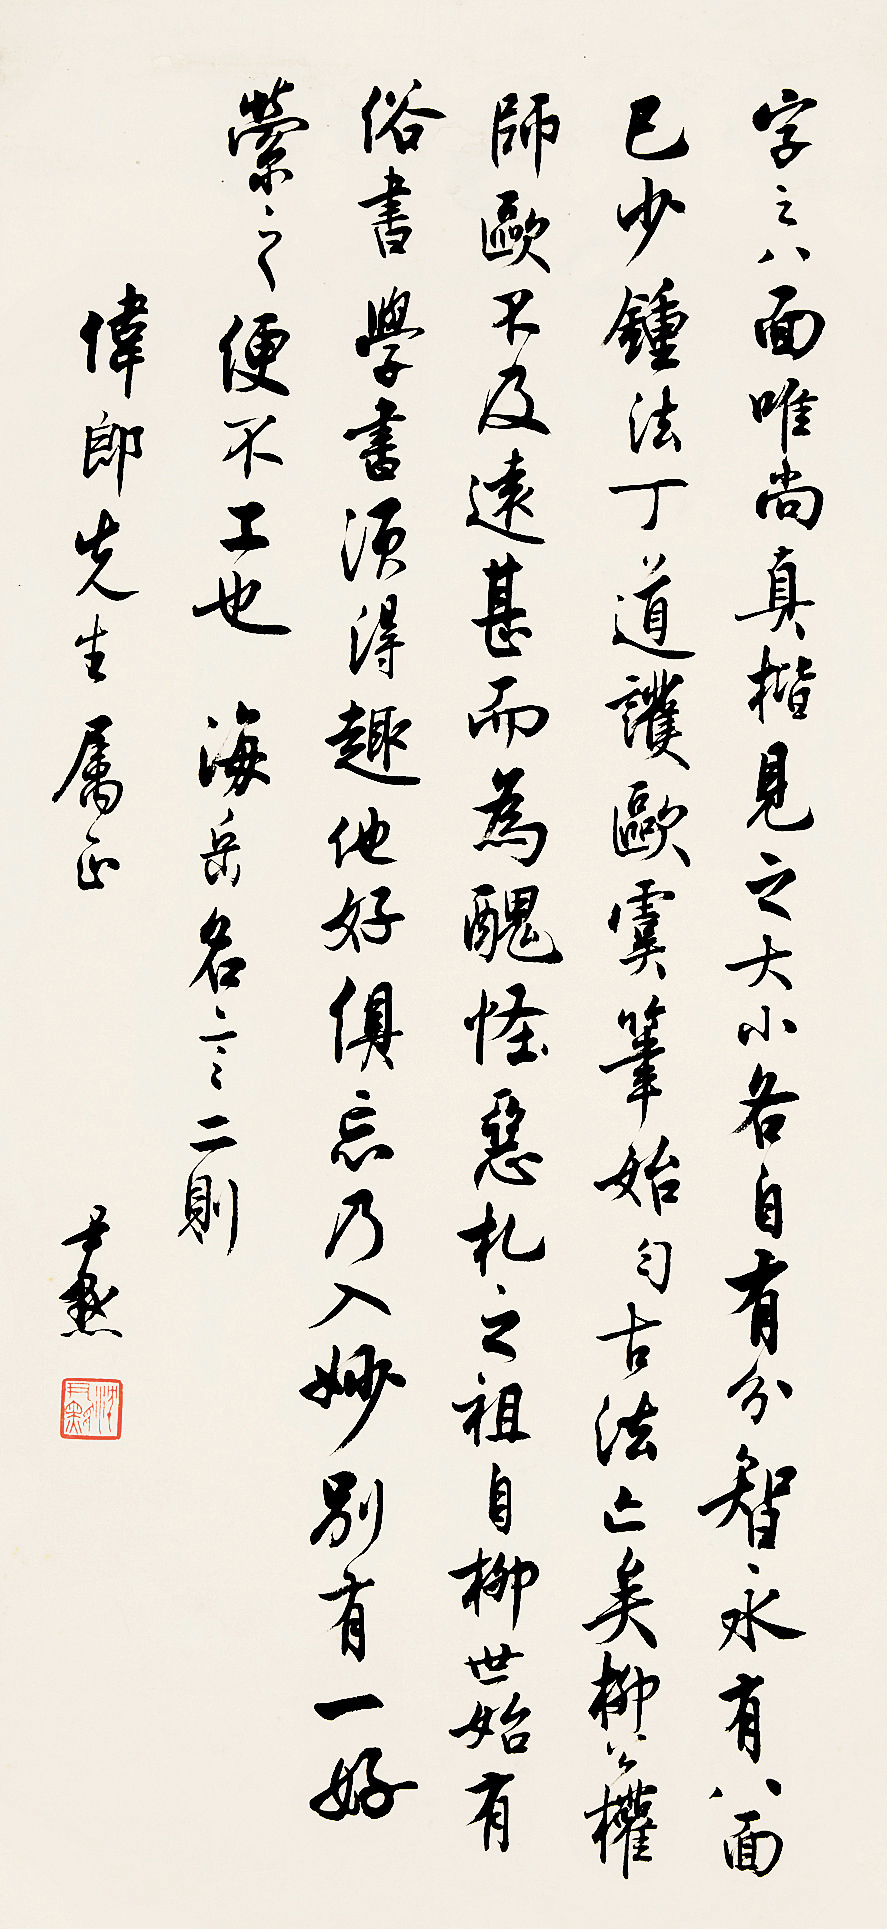 字之八面唯尚真楷見之大小各自有分智永有八面
已少鍾法丁道護歐虞筆始勻古法亡矣柳公權
師歐不及遠甚而為醜怪惡札之祖自柳世始有
俗書學書須得趣他好俱忘乃入妙別有一好
縈之便不工也 海岳名言二則
偉郎先生屬正
尹默
沈尹默